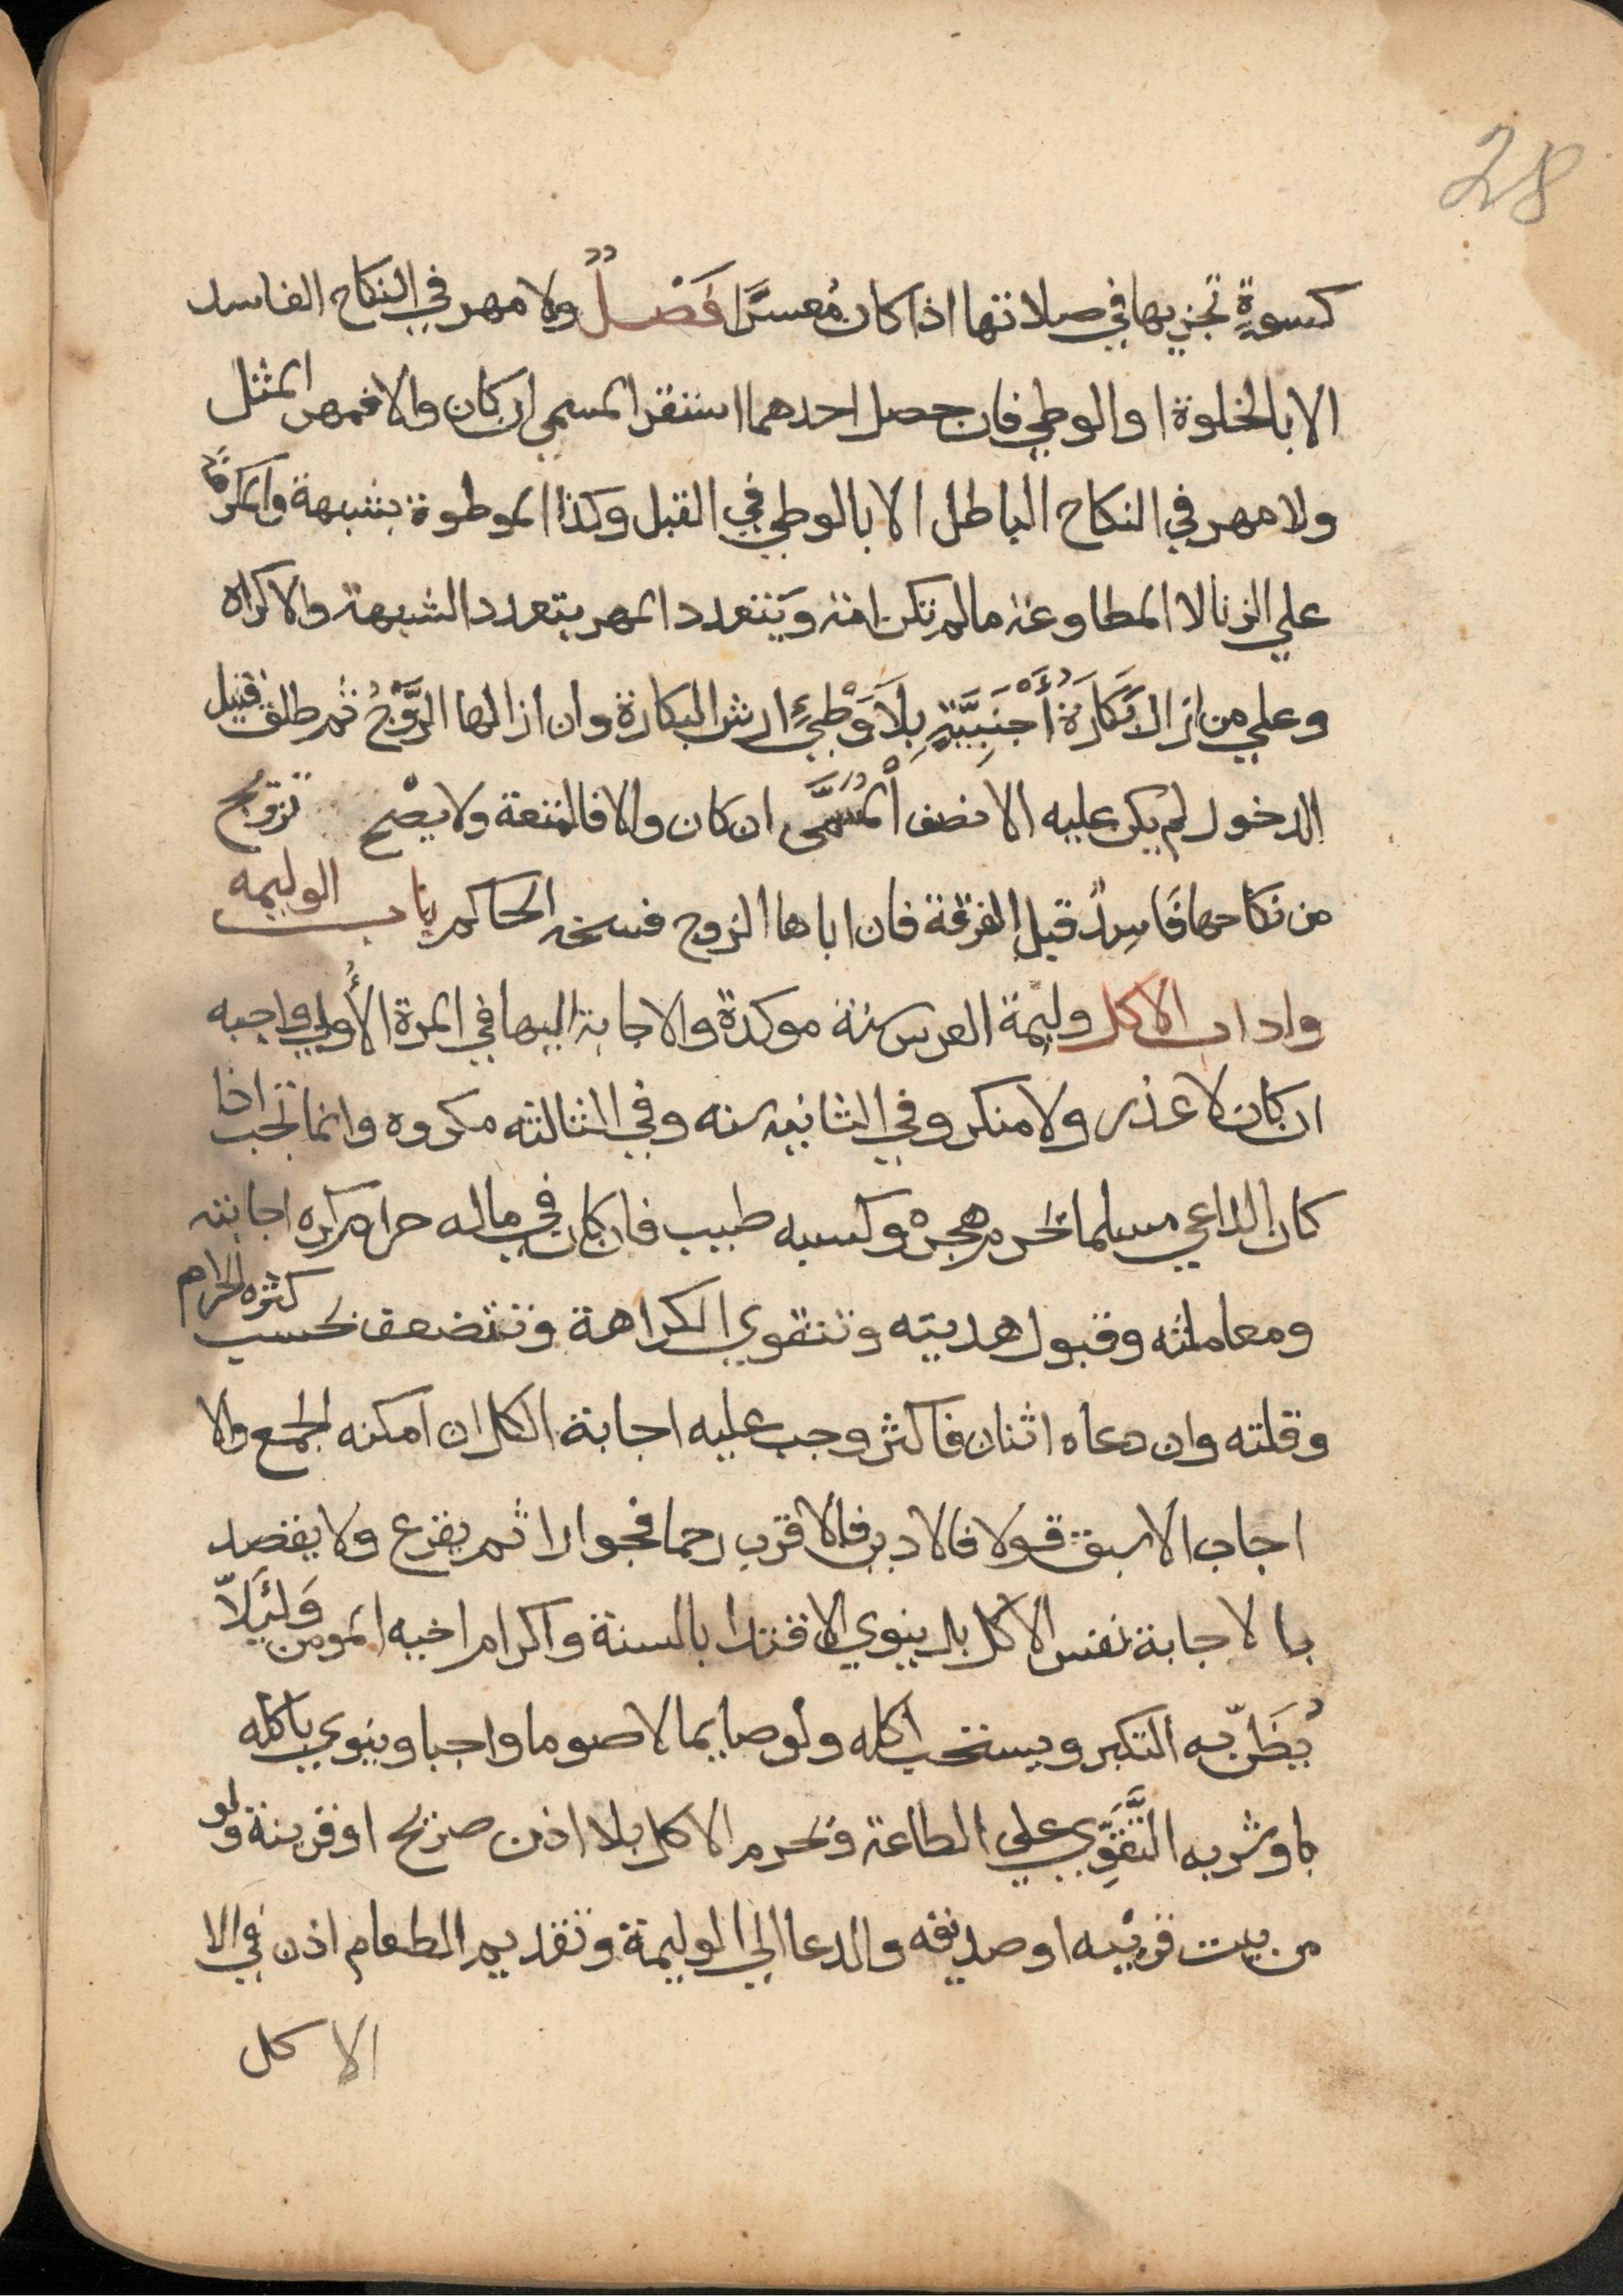 28
كسوةٍ تجزيها في صلاتها اذا كان مُعسرًا فَصْلٌ ولا مهر في النكاح الفاسد
الا بالخلوة او الوطي فان حصل احدهما استقر المسمي ان كان والا فمهر المثل
ولا مهر في النكاح الباطل الا بالوطي في القبل وكذا الموطوة بشبهة والمكرهة
علي الزنا لا المطاوعة ما لم تكن امة ويتعدد المهر بتعدد الشبهة والاكراه
وعلي من ازال بَكَارَةُ أَجْنَبِيَّةٍ بِلَا وَطْيٍ ارش البكارة وان ازالها الزَّوْجُ ثم طلق قبل
الدخول لم يكن عليه الا نصف الْمُسَمَّى ان كان والا فالمتعة ولا يصح تزويج
من نكاحها فَاسِدٌ قبل الفرقة فان اباها الزوج فسخه الحاكم باب الوليمه
واداب الاكل وليمة العرس سنة موكدة والاجابة اليها في المرة الأُولي واجبه
ان كان لا عذر ولا منكر وفي الثانيه سنه وفي الثالثه مكروه وانما تجب اذا
كان الداعي مسلما تحرم هجره وكسبه طيب فان كان في ماله حرام كره اجابته
ومعاملته وقبول هديته وتتقوي الكراهة وتتضعف بحسب كثره الحرام
وقلته وان دعاه اثنان فاكثر وجب عليه اجابة الكل ان امكنه الجمع والا
اجاب الاسبق قولا فالادين فالاقرب رحما فجوارا ثم يقرع ولا يقصد
بالاجابة نفس الاكل بل ينوي الاقتدا بالسنة واكرام اخيه المومن وَلِئَلَّا
يُظَنّ به التكبر ويستحب اكله ولو صايما لا صوما واجبا وينوي باكله
باوشربه التَّقَوِّي علي الطاعة وتحرم الاكل بلا اذن صريح او قرينة ولو
من بيت قريبه او صديقه والدعا الي الوليمة وتقديم الطعام اذن في الا
الاكل